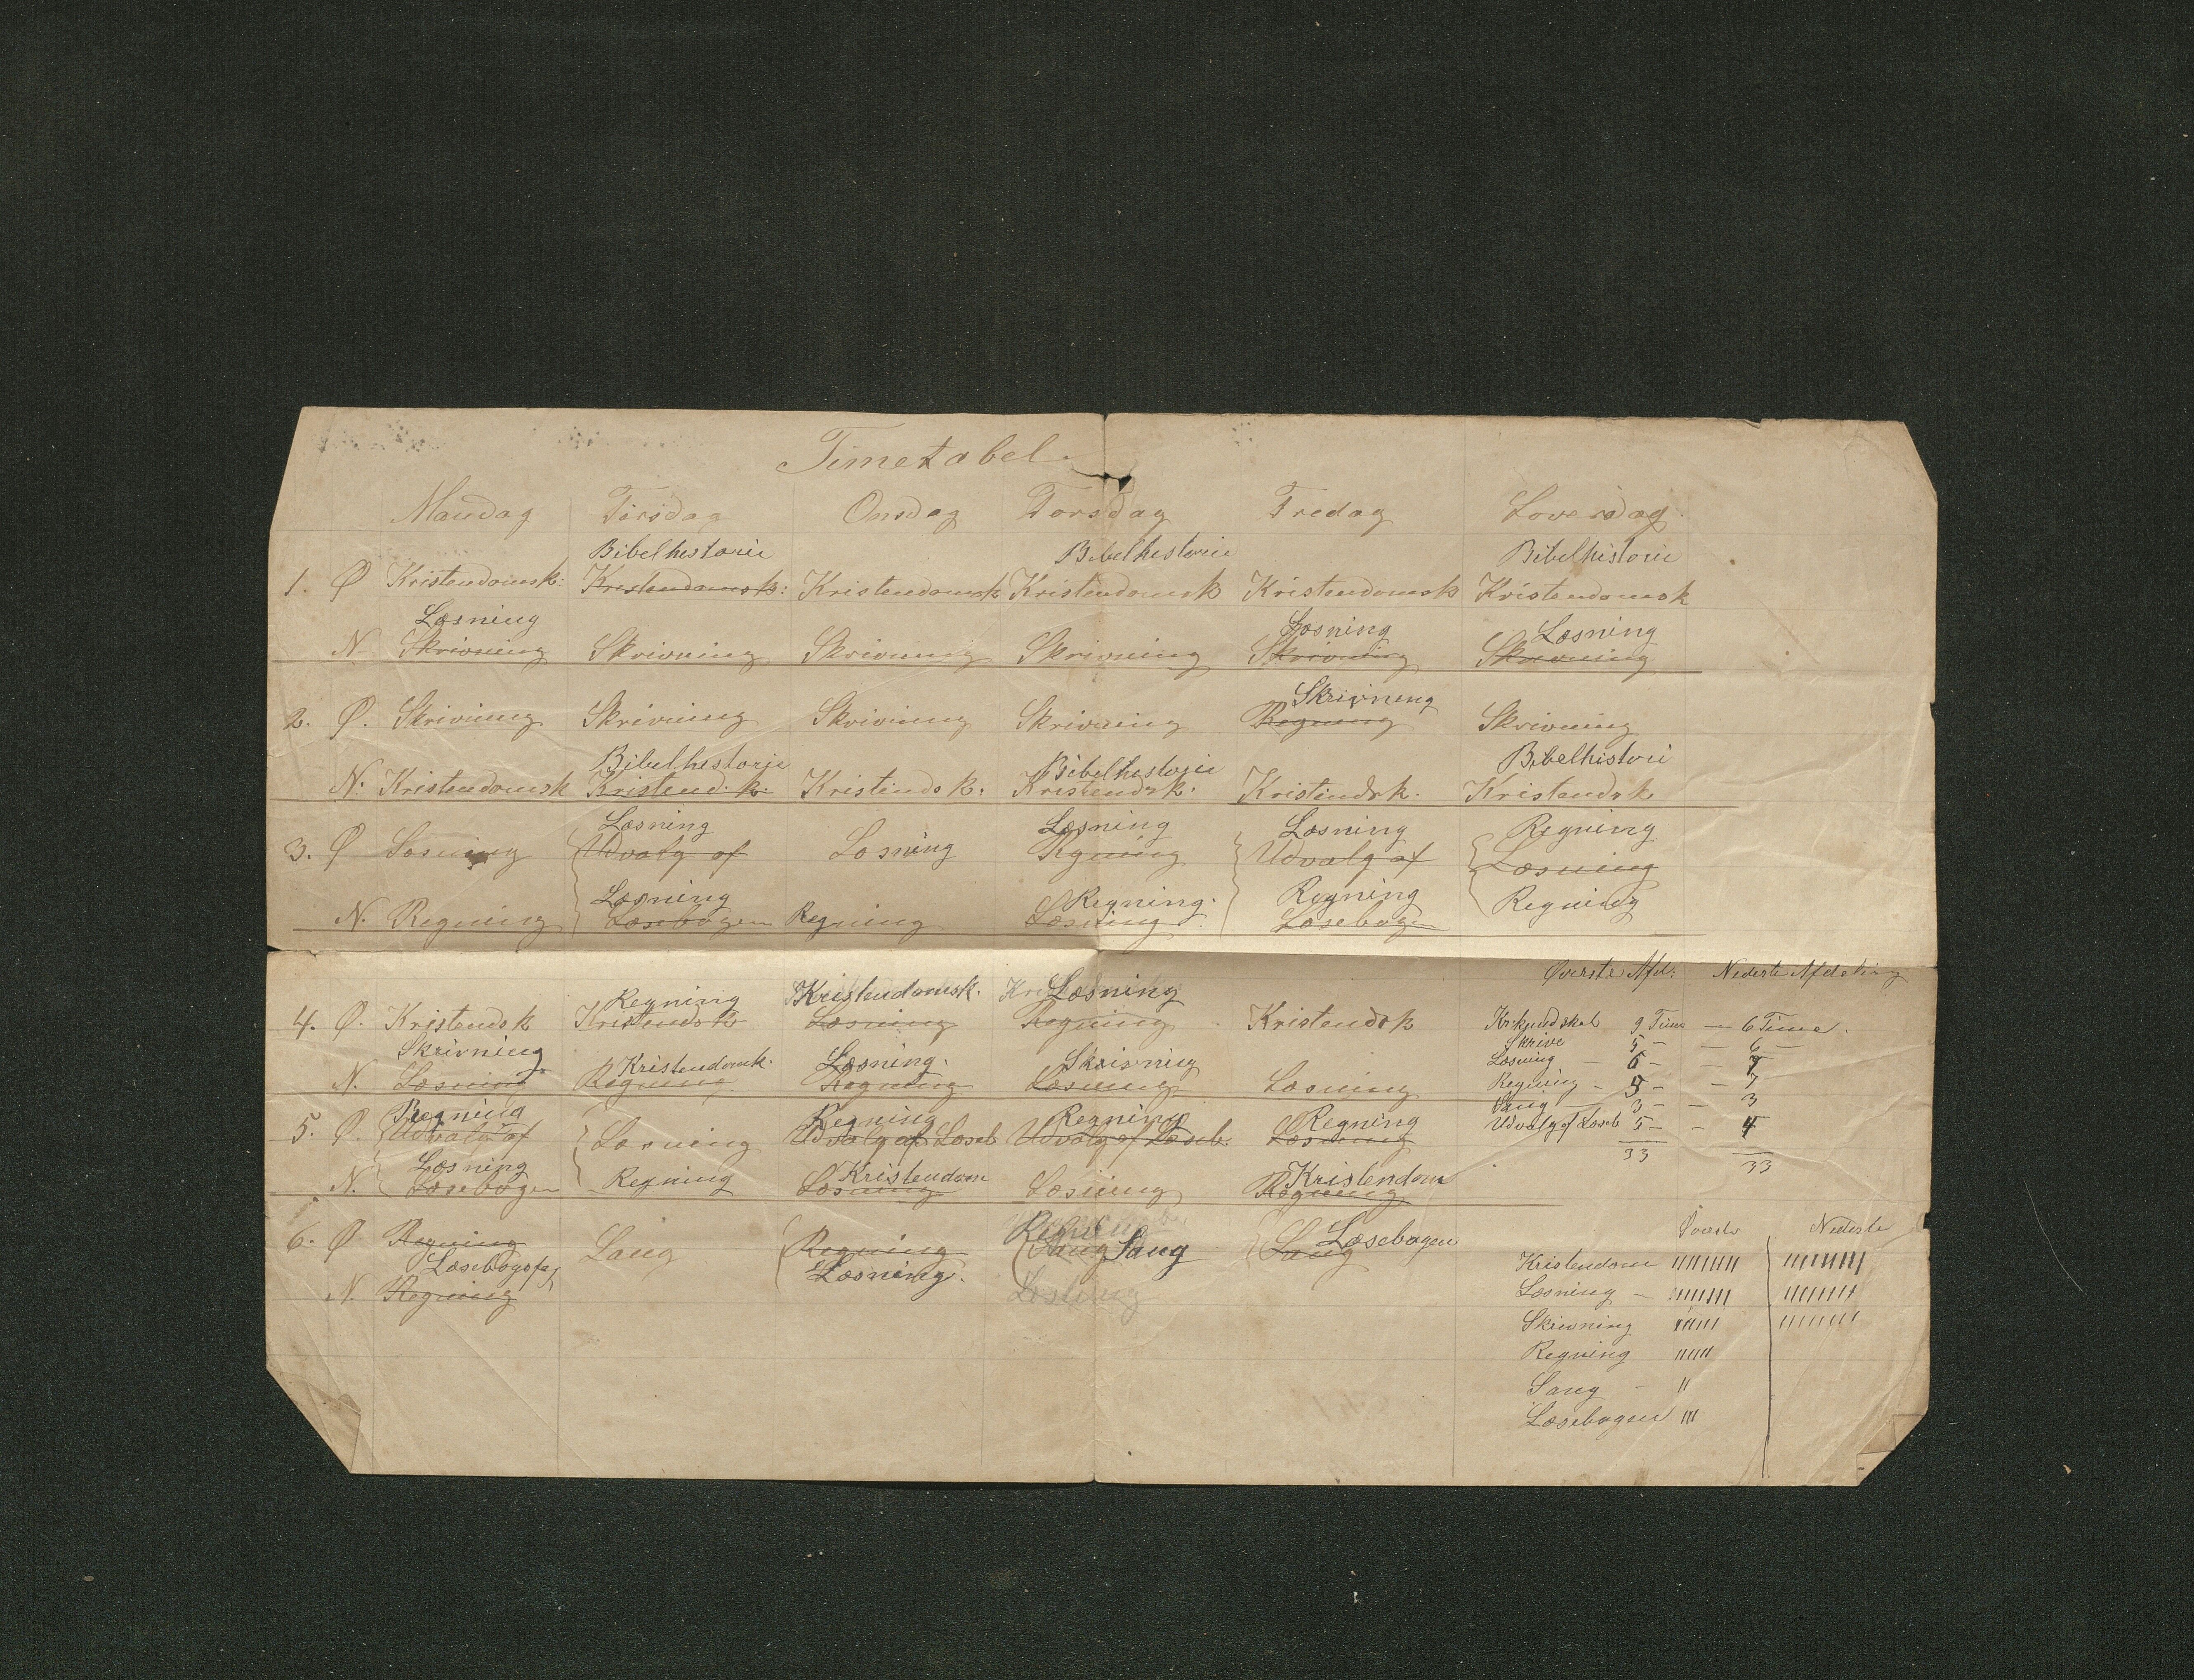 Timetabel.
Mandag Tirsdag Onsdag Torsdag Fredag Loverdag.
Bibelhestorie Bibelhestorie Bibelhistorie
1. Ø Kristendomsk: Kristendomsk: Kristendomsk Kristendomsk Kristendomsk Kristendomsk
Læsning Læsning Læsning
N Skrivning Skrivning Skrivning Skrivning Skrivning Skrivning
Skrivning
2. Ø. Skrivning Skrivning Skrivning Skrivning Regning Skrivning
Bibelhestorie Bibelhestorie Bibelhistori
N. Kristendomsk Kristend. k. Kristendsk. Kristendsk. Kristendsk. Kristendsk
Læsning Læsning Læsning Regning
3. Ø Læsning Udvalg af Læsning Regning Udvalg af Læsning
Læsning Regning. Regning
N. Regning Læsebogen Regning Læsning Læsebogen Regning
Regning Kristendomsk. Læsning
4. Ø. Kristendsk Kristendsk Læsning Regning Kristendsk
Skrivning Kristendomk. Læsning. Skrivning
N. Læsning Regning Regning Læsning Læsning
Regning Regning Regning Regning
5. Ø. Udvalg af Læsning Udvalg af Læseb Udvalg af Læseb. Læsning
Læsning Kristendom Kristendom
N. Læsebogen Regning Læsning Læsning Regning
Læsebogen
6. Ø Regning Sang Regning Sang Sang Sang
Læsebogsfag Læsning.
N. Regning Læsning
Øverste Afd: Nederste Afdeling
9 Time — 6 Time.
Skrive 5 — — 6 —
Læsning — 6 — — 7
Regning — 5 — — 7
Sang — 3 — — 3
Udvalg af Læseb 5 — — 4
33 33
Øverste Nederste
Kristendom
Læsning —
Skrivning
Regning
Sang —
Læsebogen